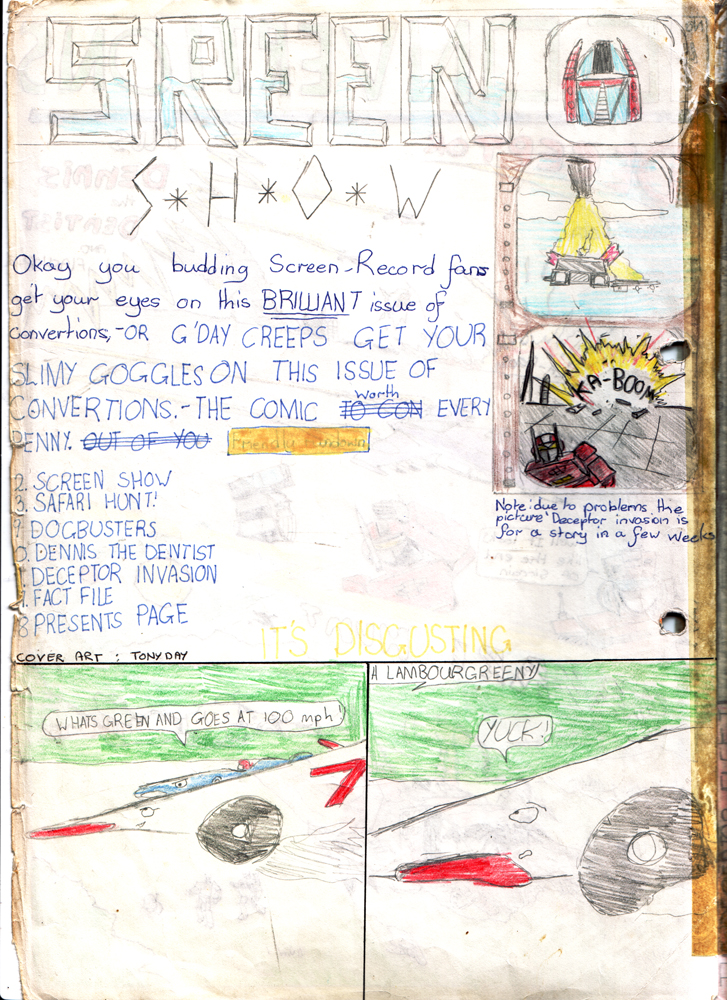 SREEN
S*H*O*W
Okay you budding Screen-Record fans
get your eyes on this BRILLIANT issue of
convertions,-OR G'DAY CREEPS GET YOUR
SLIMY GOGGLES ON THIS ISSUE OF
CONVERTIONS.-THE COMIC TO CON worth EVERY
PENNY. OUT OF YOU
2. SCREEN SHOW
3. SAFARI HUNT!
DOGBUSTERS
DENNIS THE DENTIST
DECEPTOR INVASION
FACT FILE
PRESENTS PAGE
IT'S DISGUSTING
COVER ART : TONY DAY
KA-BOOM
Note: due to problems the
picture 'Deceptor invasion is
for a story in a few weeks
WHATS GREEN AND GOES AT 100 mph!
A LAMBOURGREENY!
YUCK!
7